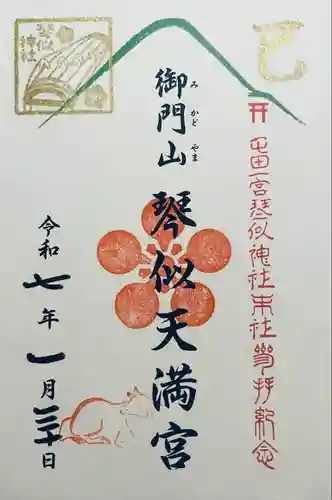 屯田一宮琴似神社末社参拝紀念
御門山
みかどやま
琴似天満宮
令和七年一月三十日
琴似神社